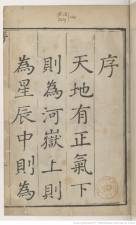 序
天地有正氣下
則為河嶽上則
為星辰中則為